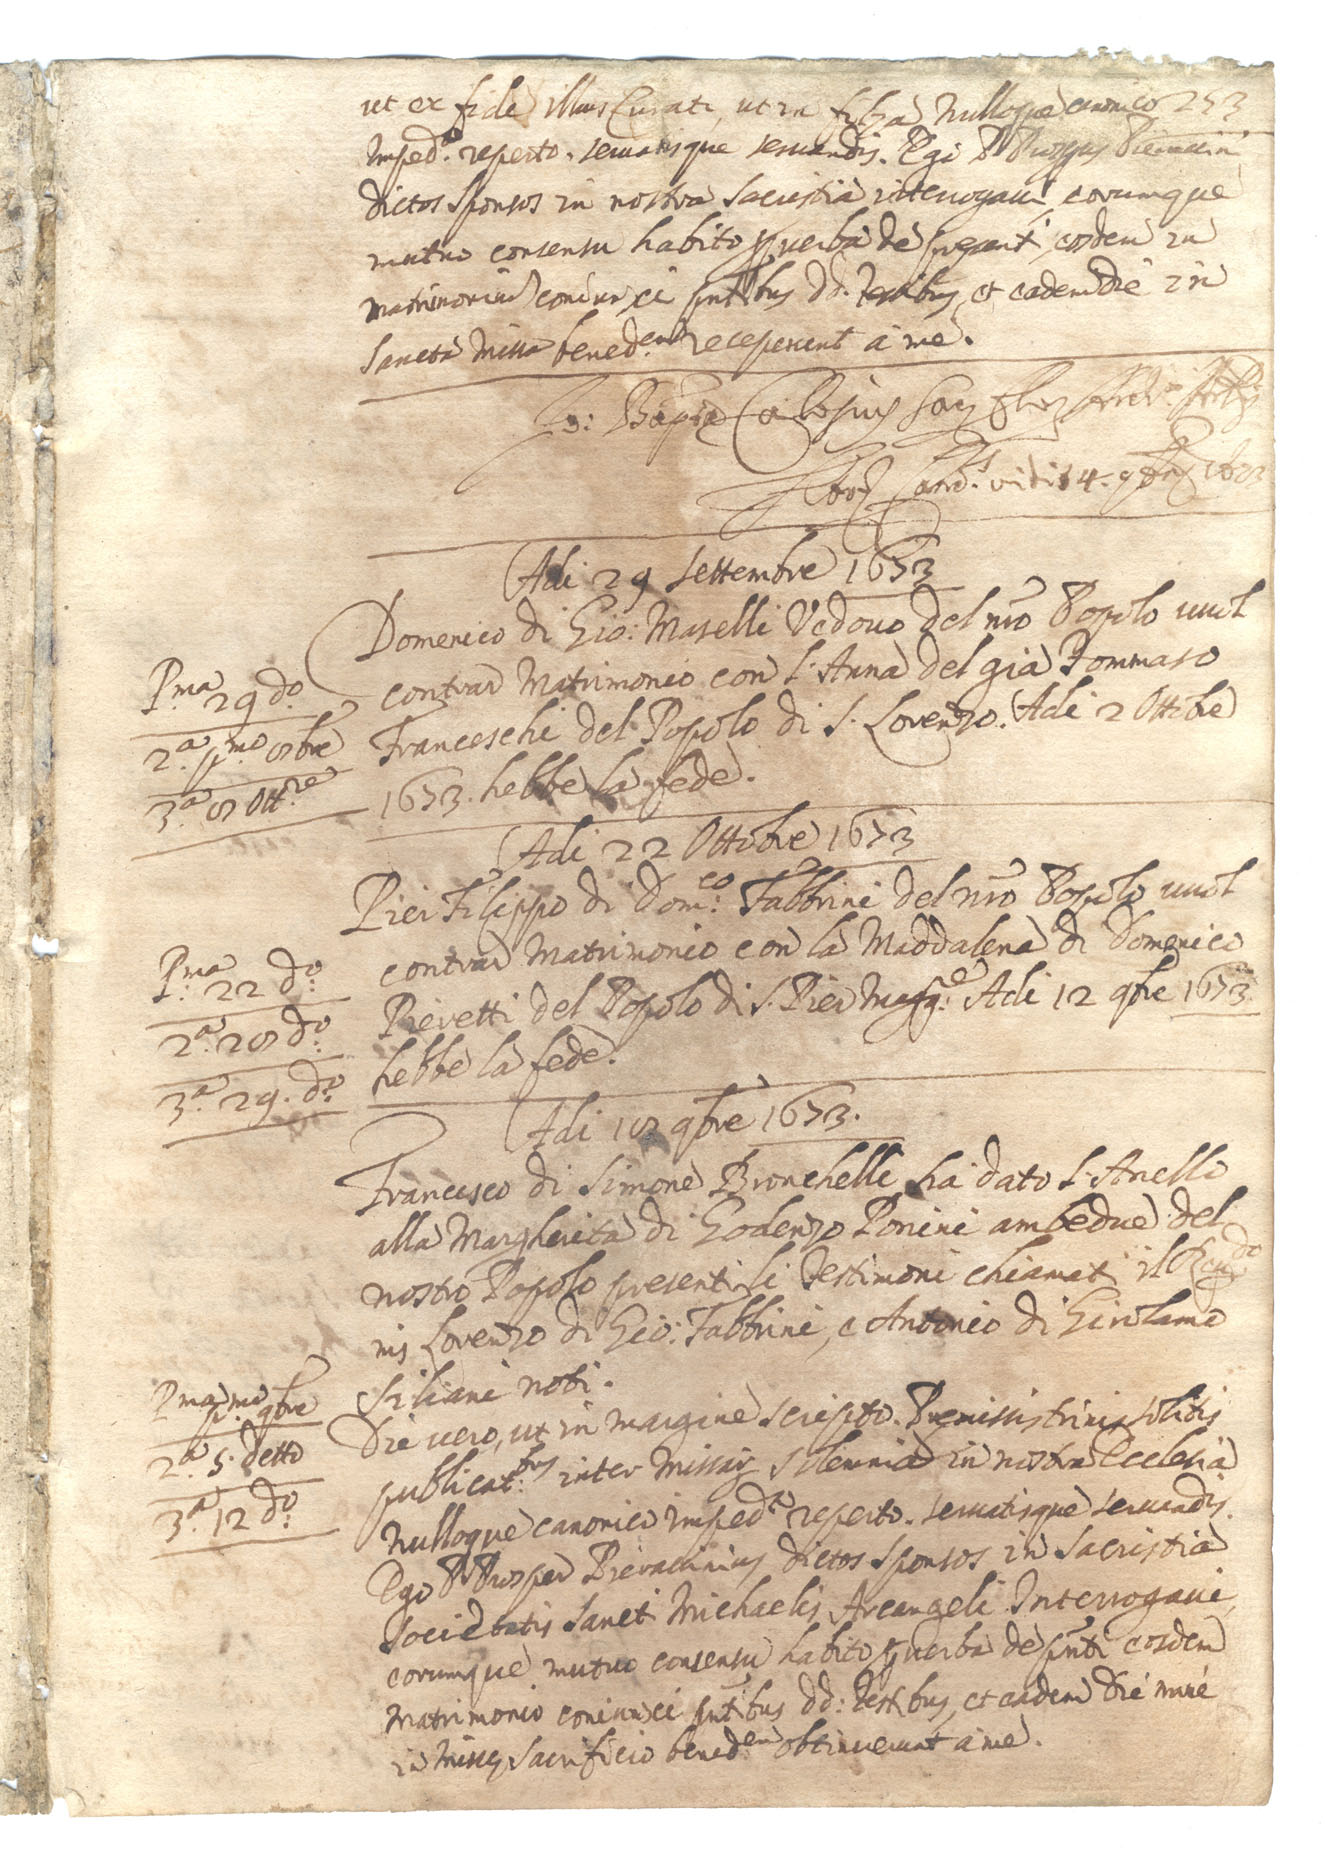 ut ex fide illius Curati, ut in filza Nulloque canonico 253
Imped.º reperto. seruatisque seruandis. Ego P. Prosper
dictos sponsos in nostra sacristia interrogaui, eorumque
mutuo consensu habito p uerba de presenti, eosdem in
matrimoniũ coniunxi pñtibus dd. Testibus, et eadem die in
sancta missa bened.em receperunt à me.
Jo: Bapta
vidi 14. 9bris
Adi 29 settembre 1673
Domenico di Gio: Maselli Vedouo del nr̃o Popolo uuol
contrar Matrimonio con l'Anna del già Tommaso
Franceschi del Popolo di S. Lorenzo. Adi 2 Ottobre
1673. hebbe la fede.
P.ma 29 do.
2.a p.mo 8bre
3.a 8 Ott.re
Adi 22 Ottobre 1673
Pier Filippo di Dom.co Fabbrini del nr̃o Popolo uuol
contrar Matrimonio con la Maddalena di Domenico
Pieretti del Popolo di S. Pier Magg.e Adi 12 9bre 1673.
hebbe la fede.
P.ma 22 do.
2.a 28 do.
3.a 29. do.
Adi 18 9bre 1673.
Francesco di Simone Bronchelli ha dato l'Anello
alla Margherita di Godenzo Ponini ambedue del
nostro Popolo presenti li Testimoni chiamati il
Lorenzo di Gio: Fabbrini, e Antonio di Girolamo
Siliani noti.
Die uero, ut in margine scripto. Premissis trinis solitis
publicat.bus inter Missar solemnia in nostra Ecclesia
nulloque canonico imped.o reperto. seruatisque seruandis.
Ego P. Prosper Pieraccinius dictos sponsos in sacristia
Societatis Sancti Michaelis Arcangeli Interrogaui,
eorumque mutuo consensu habito p uerba de pñti eosdem
Matrimonio coniunxi pñtibus dd: Testibus, et eadem die mane
in Missę sacrificio bened.em obtinuerunt à me.
P.ma p.mo 9bre
2.a 5. detto
3.a 12 do.